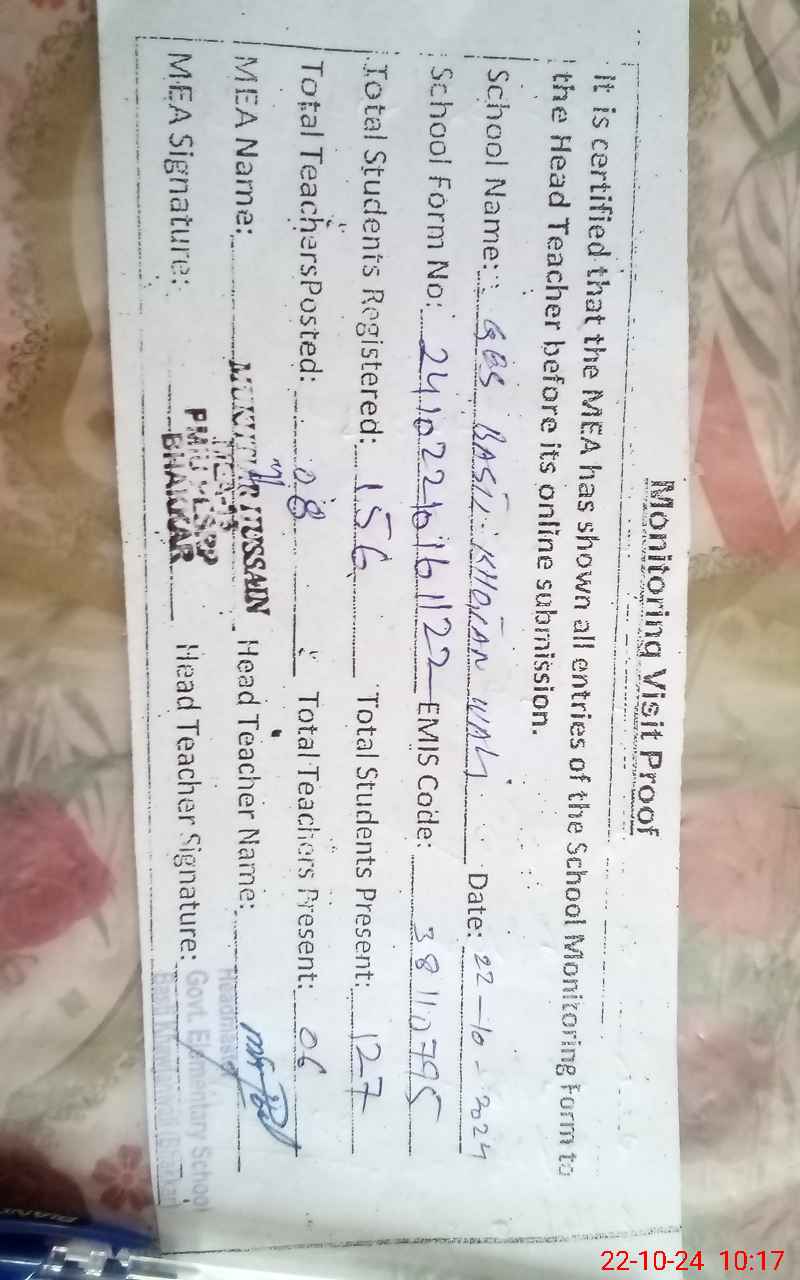 Monitoring Visit Proof
It is certified that the MEA has shown all entries of the School Monitoring Form to
the Head Teacher before its online submission.
School Name: GES BASTI KHOJAN WALI Date: 22-10-2024
School Form No: 2410221016 1122 EMIS Code: 38110795
Total Students Registered: 156 Total Students Present: 127
Total TeachersPosted: 08 Total Teachers Present: 06
MEA Name: HUSSAIN Head Teacher Name:
MEA Signature: BHAKKAR Head Teacher Signature:
Headmaster
Govt. Elementary School
Basti
22-10-24 10:17